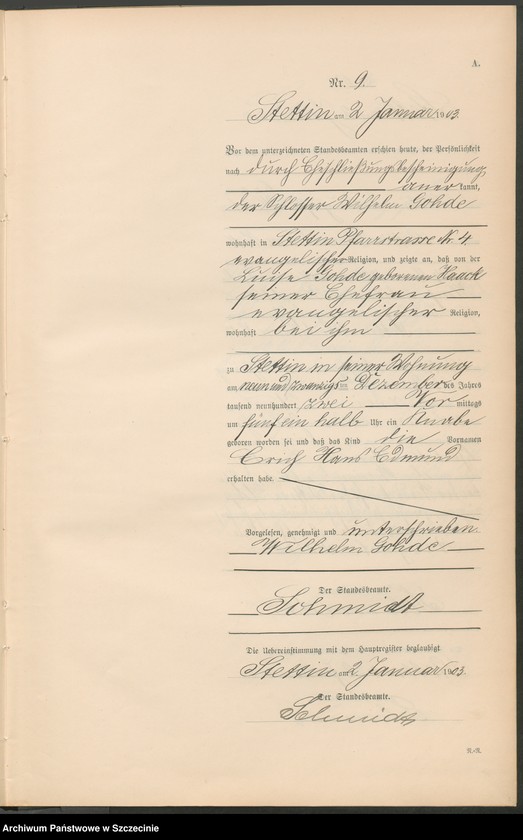 A.
Nr. 9.
Stettin am 2 Januar 1903.
Vor dem unterzeichneten Standesbeamten erschien heute, der Persönlichkeit
nach durch Eheschließungsbescheinigung
anerkannt,
der Schlosser Wilhelm Gohde
wohnhaft in Stettin Pfarrstrasse Nr. 4
evangelischer Religion, und zeigte an, daß von der
Luise Gohde geborenen Haack
seiner Ehefrau
evangelischer Religion,
wohnhaft bei ihm
zu Stettin in seiner Wohnung
am neunundzwanzigsten Dezember des Jahres
tausend neunhundert zwei Vormittags
um fünf ein halb Uhr ein Knabe
geboren worden sei und daß das Kind die Vornamen
Erich Hans Edmund
erhalten habe.
Vorgelesen, genehmigt und unterschrieben.
Wilhelm Gohde
Der Standesbeamte.
Schmidt
Die Uebereinstimmung mit dem Hauptregister beglaubigt
Stettin am 2. Januar 1903.
Der Standesbeamte.
Schmidt
R.-R.
Archiwum Państwowe w Szczecinie